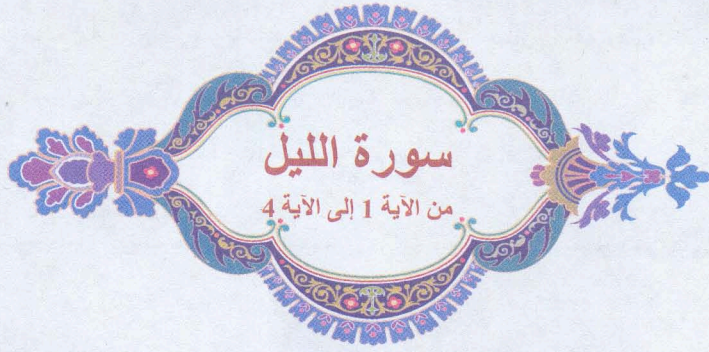 سورة الليل
من الآية 1 إلى الآية 4